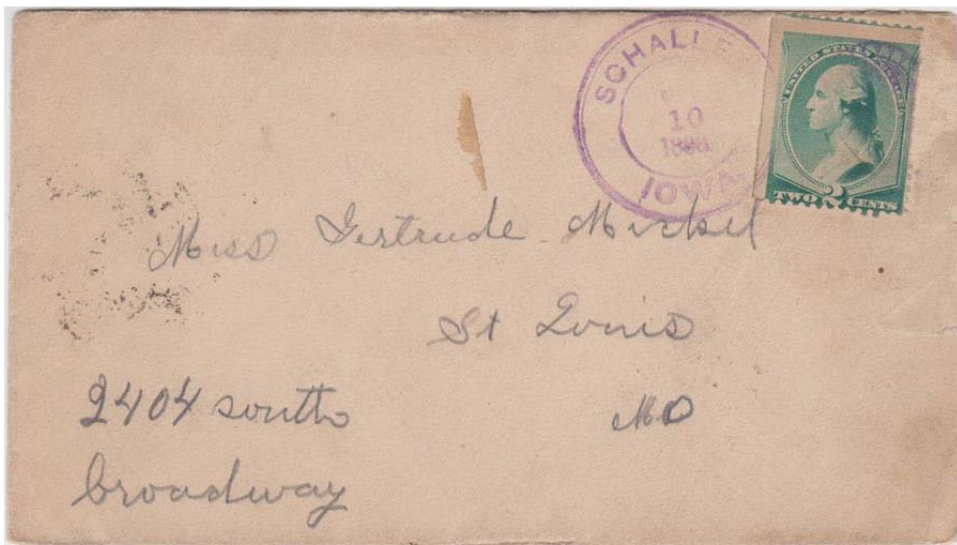 SCHALLE
10
IOWA
UNITED STATES POSTAGE
2
TWO CENTS
Miss Gertrude Mickel
St Louis
MO
2404 south
broadway